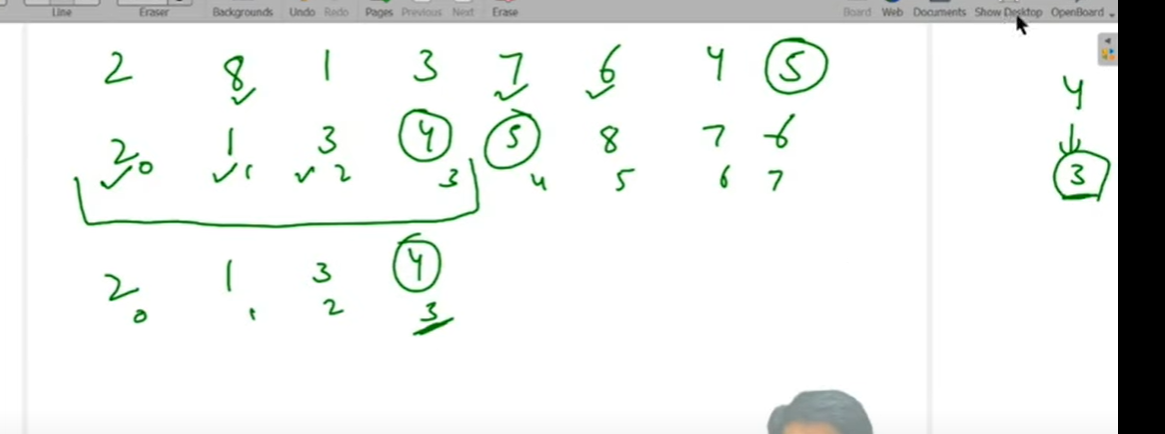 Line Eraser Backgrounds Undo Redo Pages Previous Next Erase Board Web Documents Show Desktop OpenBoard
2 8 1 3 7 6 4 5
2 1 3 4 5 8 7 6
0 1 2 3 4 5 6 7
2 1 3 4
0 1 2 3
4
3